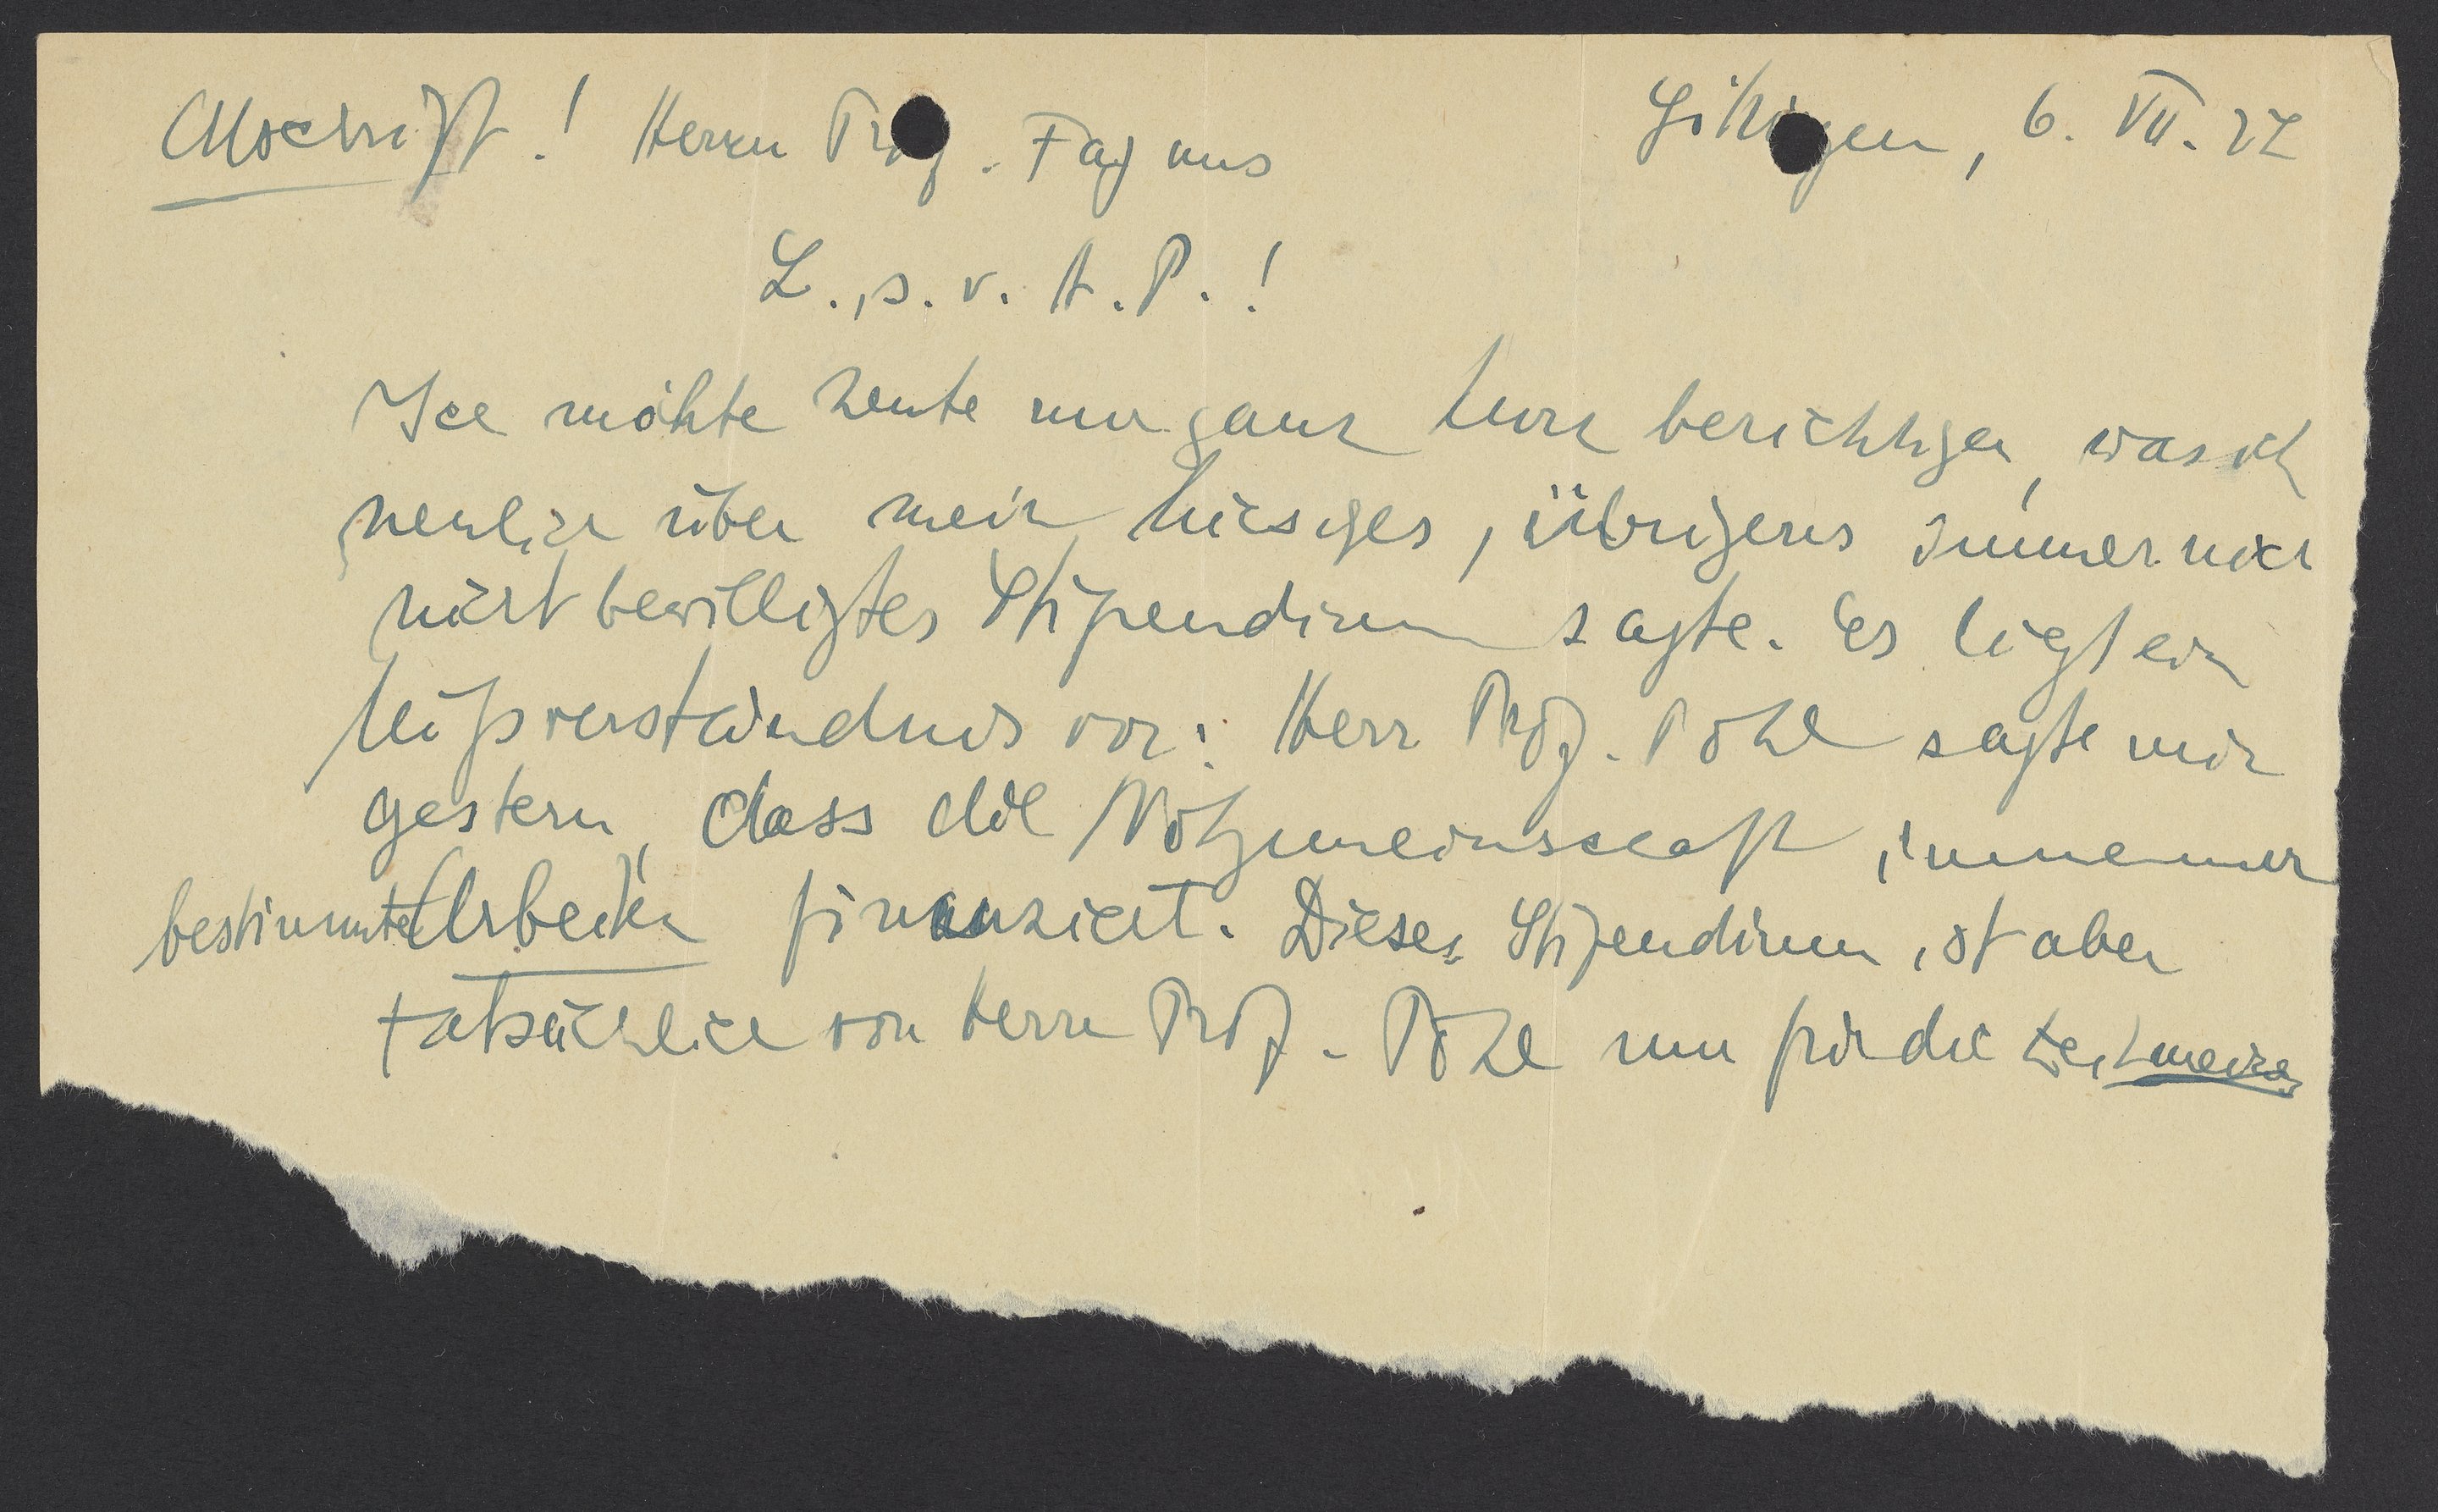 Abschrift! Herrn Prof. Fajans Göttingen, 6. VII. 32
L., s. v. H. P.!
Ich möchte heute nur ganz kurz berichtigen, was ich
neulich über mein hiesiges, übrigens immer noch
nicht bewilligtes Stipendium sagte. Es liegt ein
Mißverständnis vor: Herr Prof. Pohl sagte mir
gestern, dass die Notgemeinschaft immer nur
bestimmte Arbeiten finanziert. Dieses Stipendium ist aber
tatsächlich von Herrn Prof. Pohl nur für die Zeit meiner